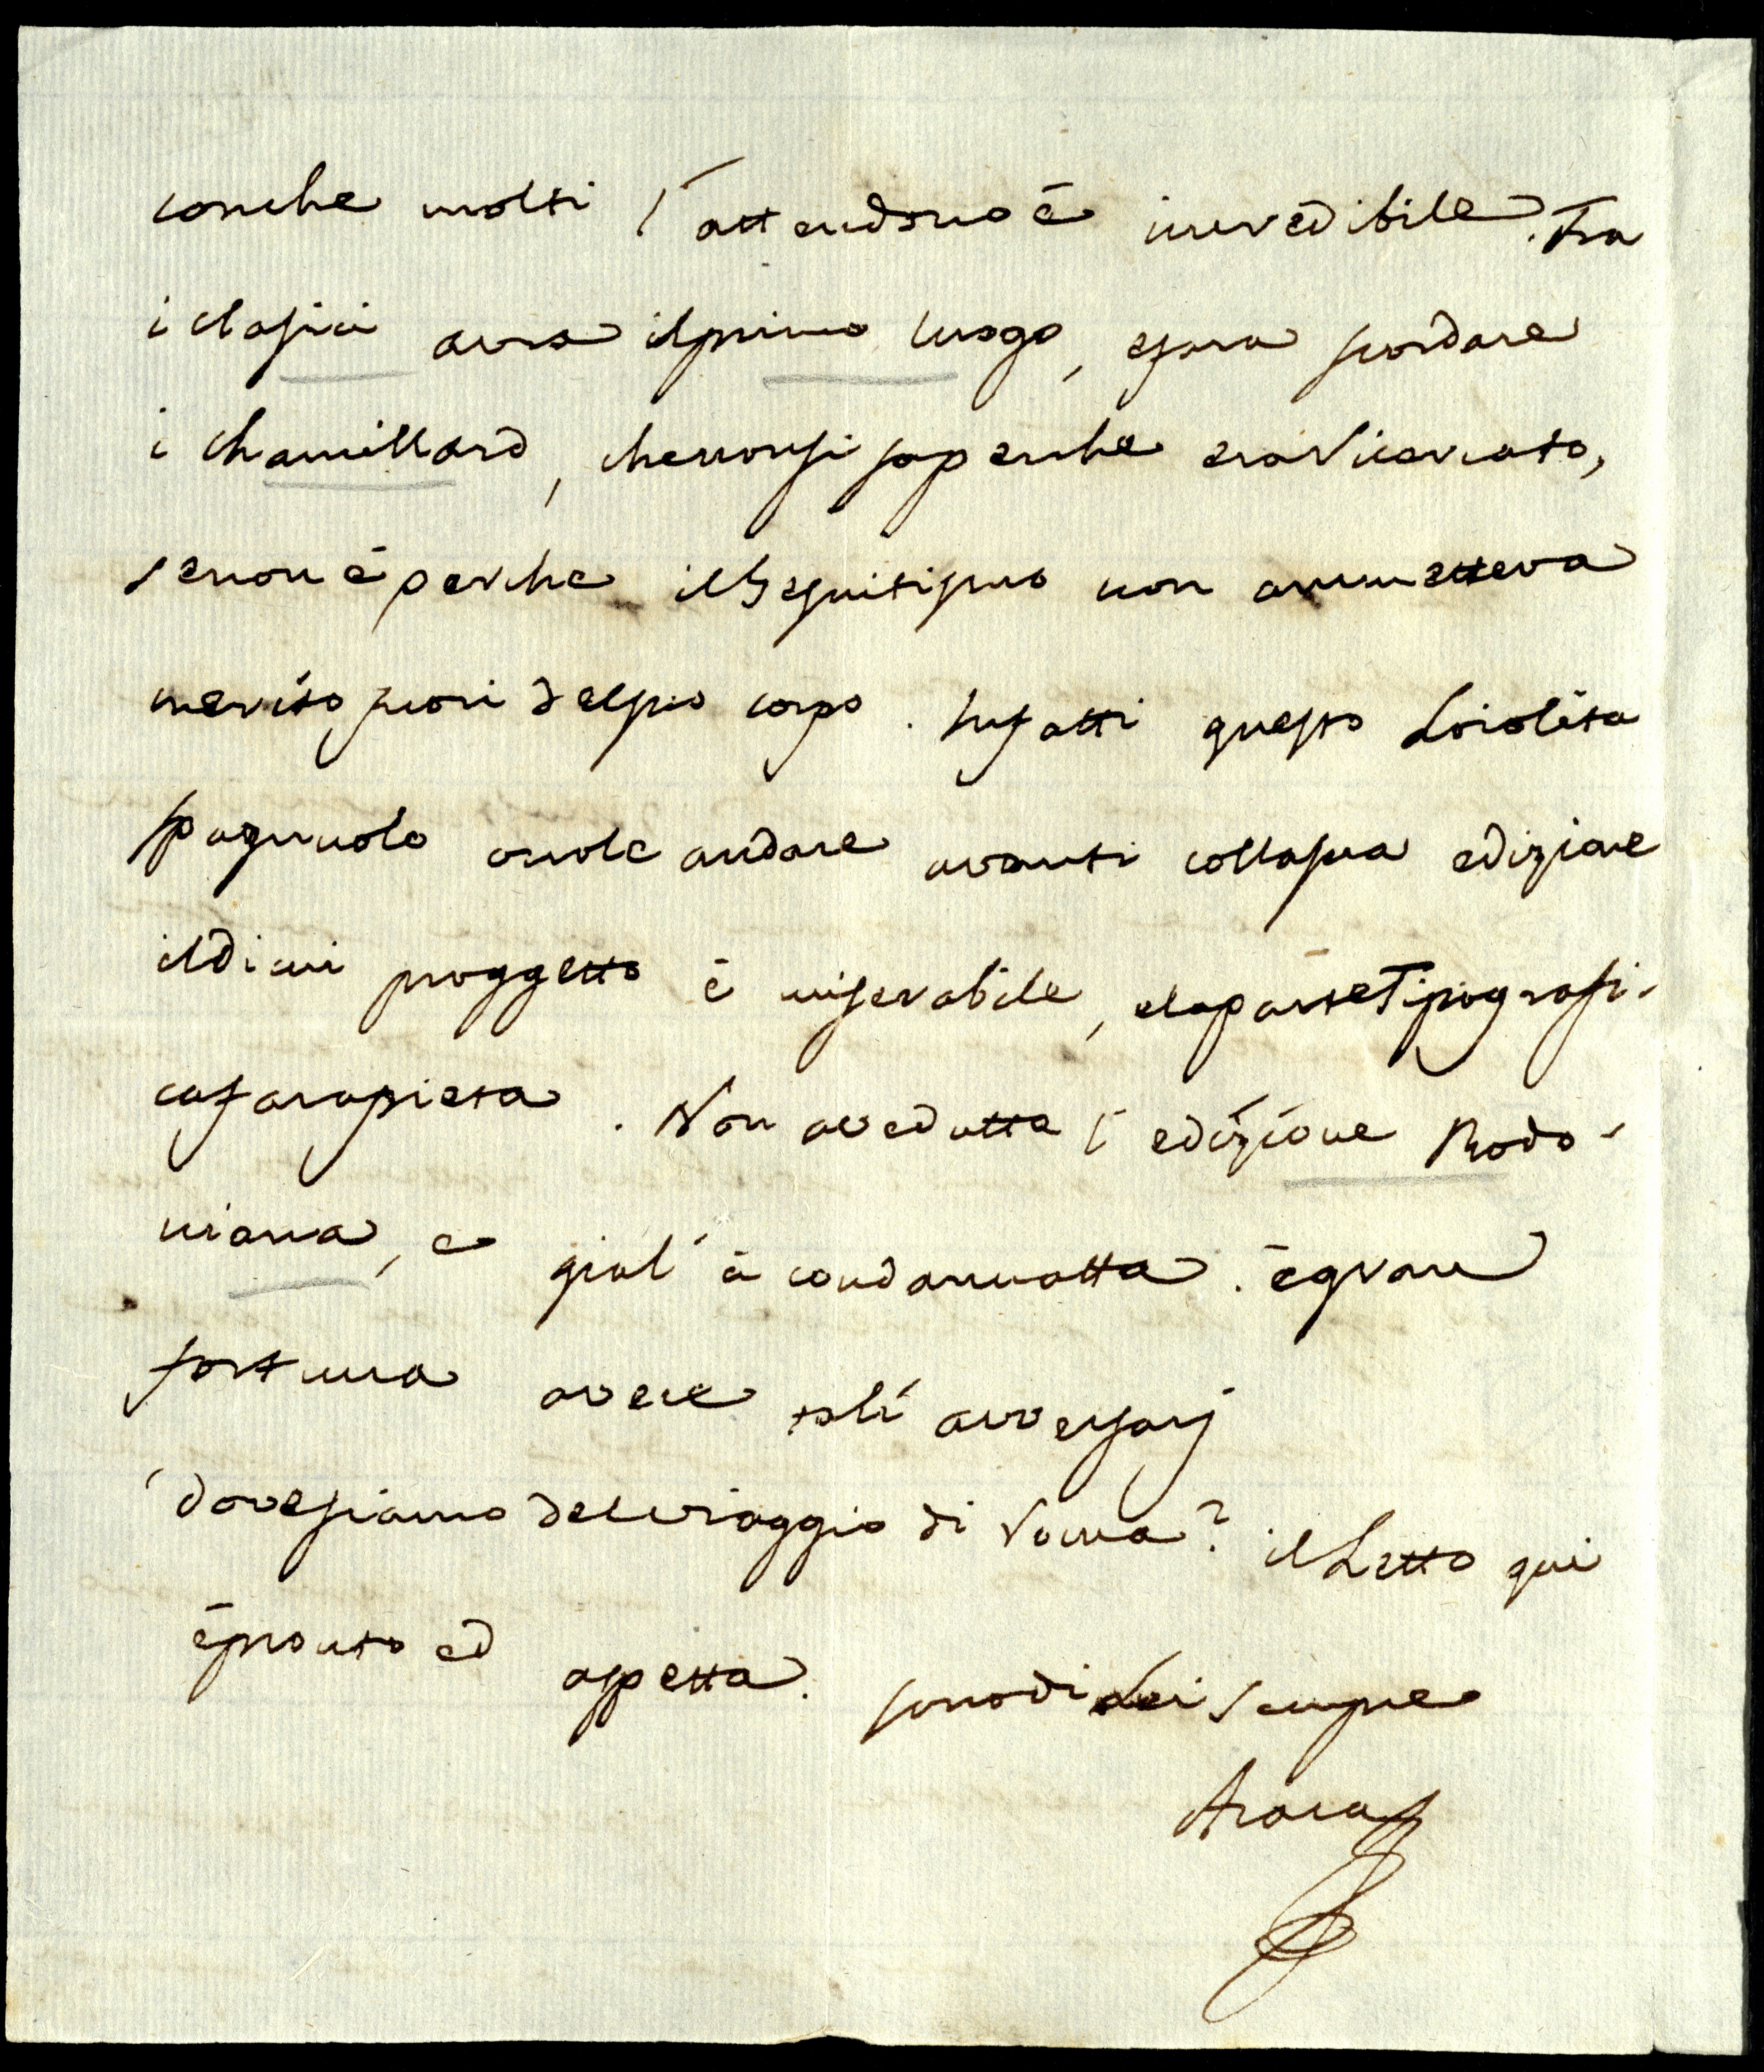 conche molti l'attendono è incredibile. Tra
i classici avrà il primo luogo, e farà scordare
i Chamillard, che non si sa perche era ricercato,
se non è perche il Gesuitismo non ammetteva
merito fuori del suo corpo. Infatti questo Loiolita
spagnuolo vuole andare avanti colla sua edizione
il di cui proggetto è miserabile, e la parte Tipografi-
ca fara pieta. Non a vedutta l'edizione Bodo-
niana, e gia l'à condannatta. è gran
fortuna avere tali avversarj
dove siamo del viaggio di roma? il Letto qui
è pronto ed aspetta. sono di Lei sempre